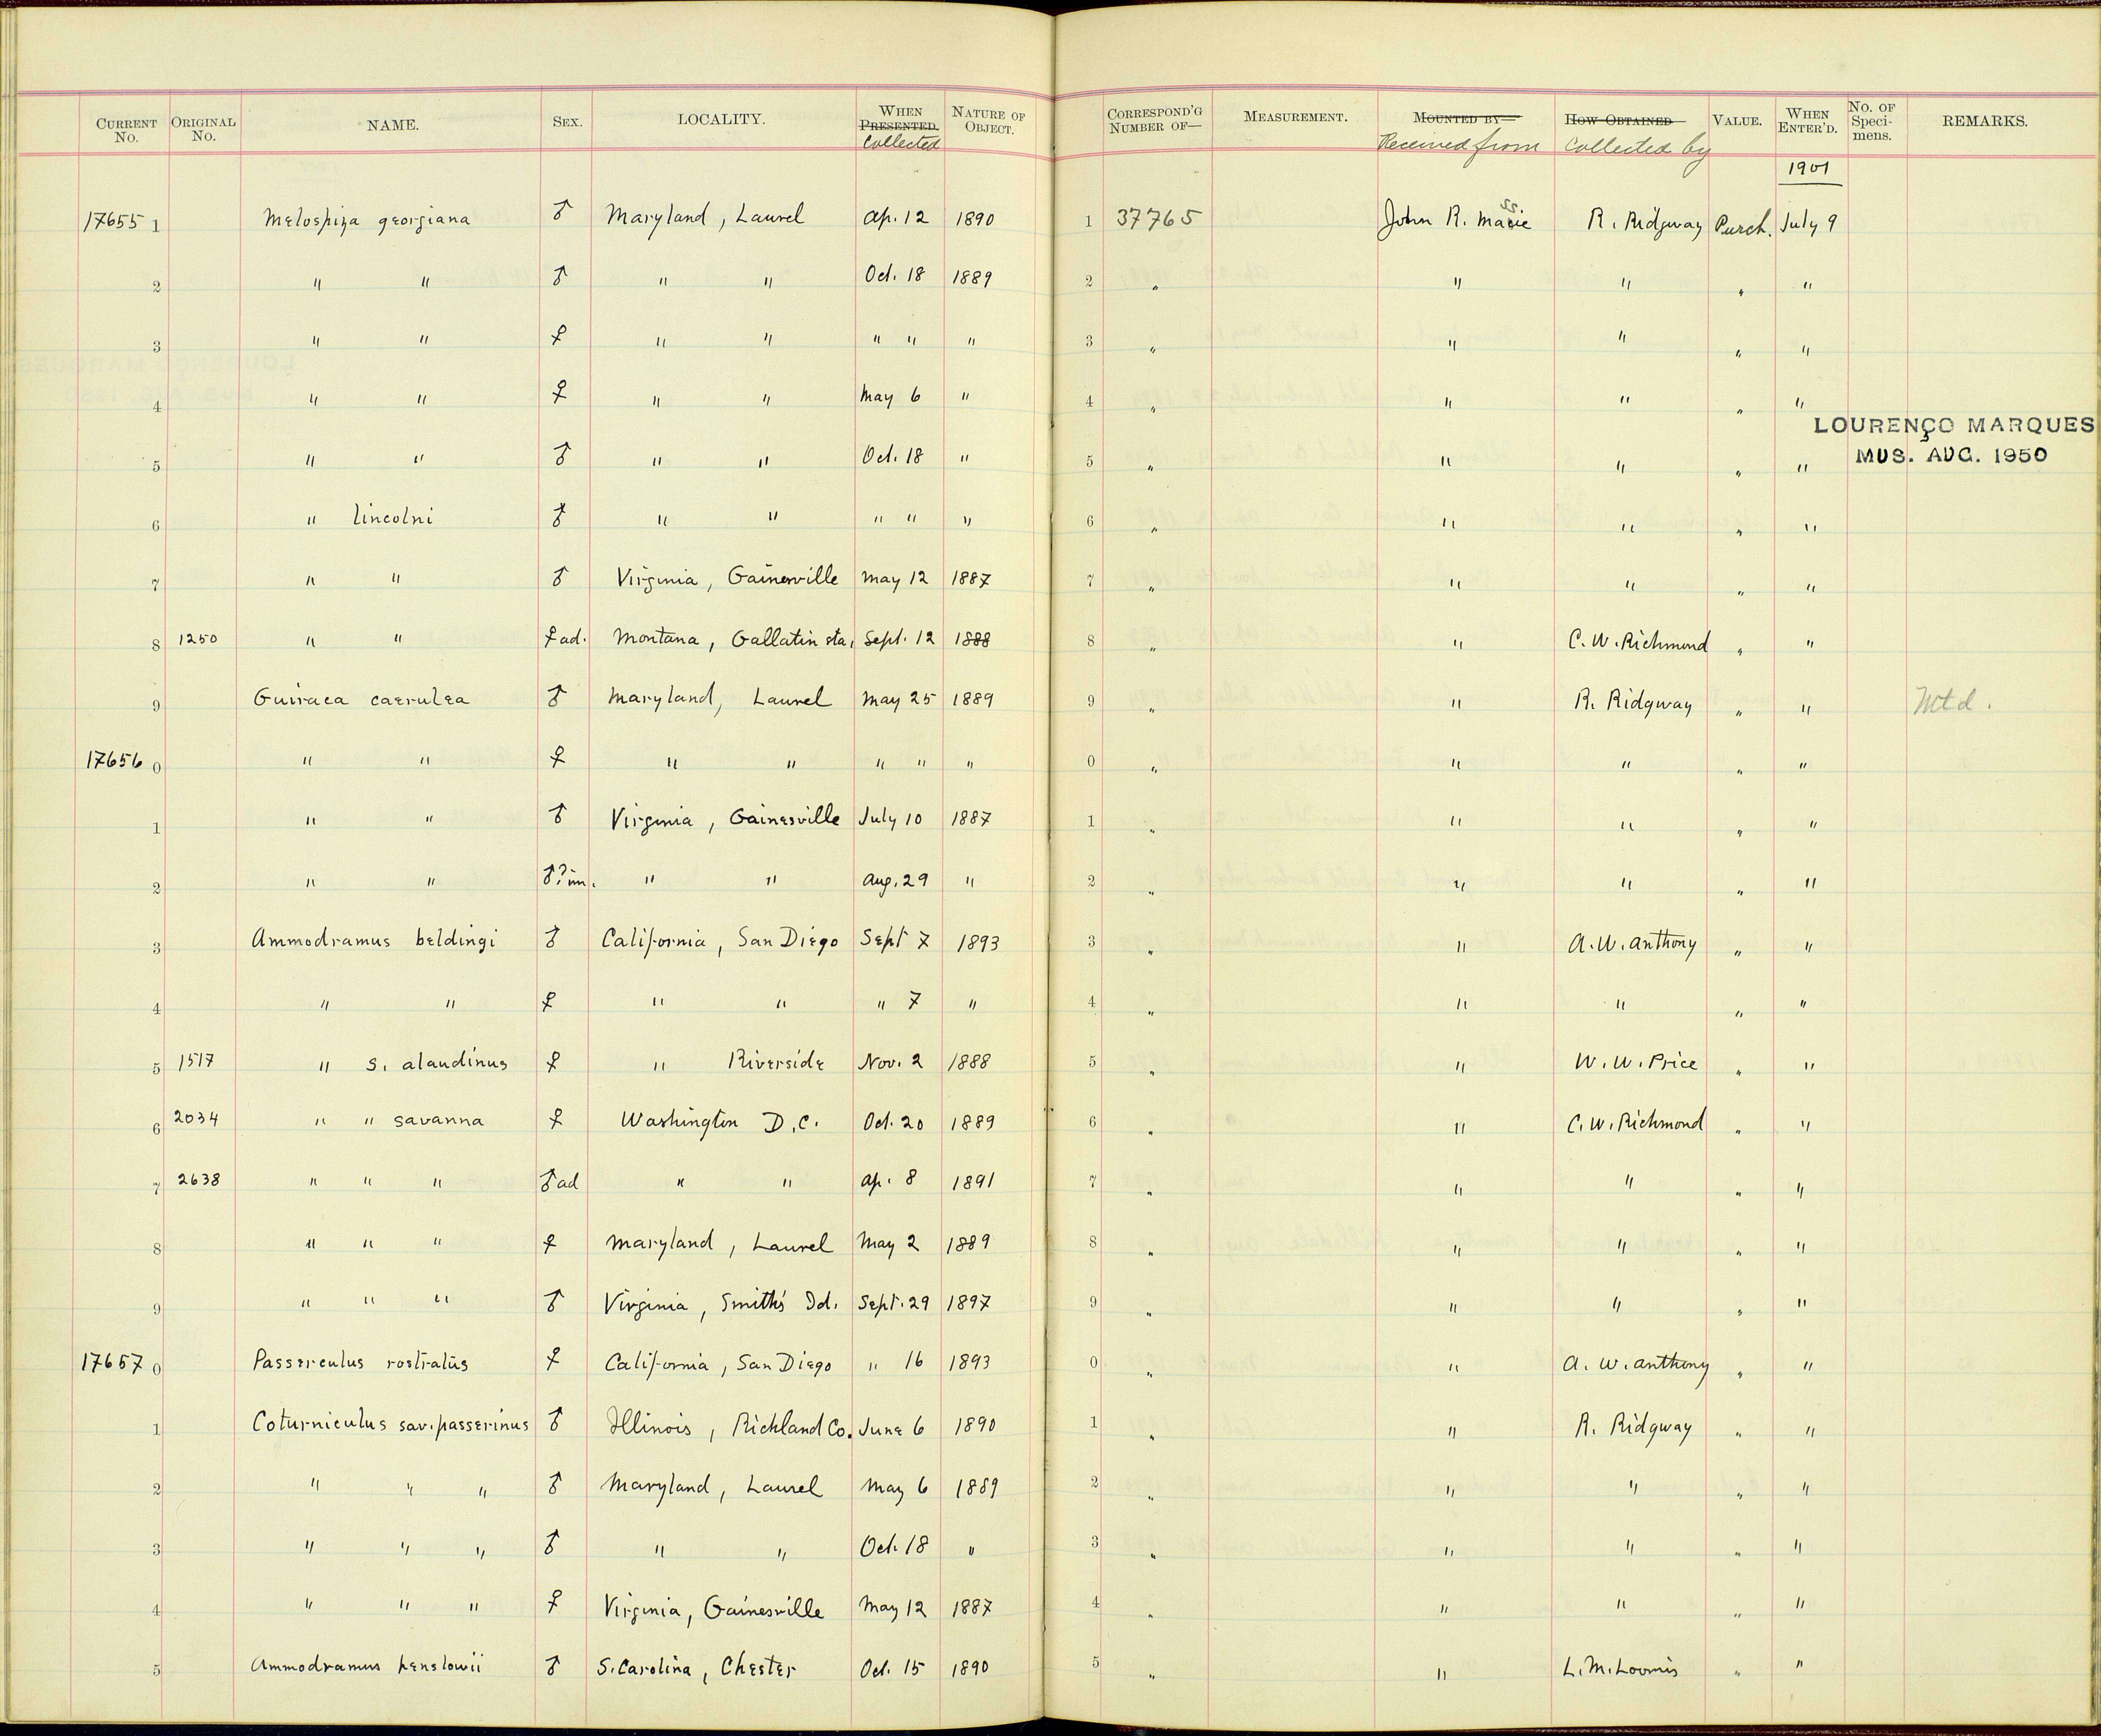 CURRENT No. ORIGINAL No. NAME. SEX. LOCALITY. WHEN PRESENTED. Collected NATURE OF OBJECT. CORRESPOND'G NUMBER OF— MEASUREMENT. MOUNTED BY— Received from HOW OBTAINED Collected by VALUE. WHEN ENTER'D. No. OF Speci-mens. REMARKS.
1901
17655 1 Melospiza georgiana ♂ Maryland, Laurel Ap. 12 1890 1 37765 John R. Macie ss R. Ridgway Purch. July 9
2 " " ♂ " " Oct. 18 1889 2 " " " " "
3 " " ♀ " " " " " 3 " " " " "
4 " " ♀ " " May 6 " 4 " " " " "
LOURENÇO MARQUES
MUS. AUG. 1950
5 " " ♂ " " Oct. 18 " 5 " " " " "
6 " lincolni ♂ " " " " " 6 " " " " "
7 " " ♂ Virginia, Gainesville May 12 1887 7 " " " " "
8 1250 " " ♀ ad. Montana, Gallatin sta. Sept. 12 1888 8 " " C. W. Richmond " "
9 Guiraca caerulea ♂ Maryland, Laurel May 25 1889 9 " " R. Ridgway " " Mtd.
17656 0 " " ♀ " " " " " 0 " " " " "
1 " " ♂ Virginia, Gainesville July 10 1887 1 " " " " "
2 " " ♂? im. " " Aug. 29 " 2 " " " " "
3 Ammodramus beldingi ♂ California, San Diego Sept 7 1893 3 " " A. W. Anthony " "
4 " " ♀ " " " 7 " 4 " " " " "
5 1517 " s. alaudinus ♀ " Riverside Nov. 2 1888 5 " " W. W. Price " "
6 2034 " " savanna ♀ Washington D.C. Oct. 20 1889 6 " " C. W. Richmond " "
7 2638 " " " ♂ ad " " Ap. 8 1891 7 " " " " "
8 " " " ♀ Maryland, Laurel May 2 1889 8 " " " " "
9 " " " ♂ Virginia, Smith's Id. Sept. 29 1897 9 " " " " "
17657 0 Passerculus rostratus ♀ California, San Diego " 16 1893 0 " " A. W. Anthony " "
1 Coturniculus sav. passerinus ♂ Illinois, Richland Co. June 6 1890 1 " " R. Ridgway " "
2 " " " ♂ Maryland, Laurel May 6 1889 2 " " " " "
3 " " " ♂ " " Oct. 18 " 3 " " " " "
4 " " " ♀ Virginia, Gainesville May 12 1887 4 " " " " "
5 Ammodramus henslowii ♂ S. Carolina, Chester Oct. 15 1890 5 " " L. M. Loomis " "